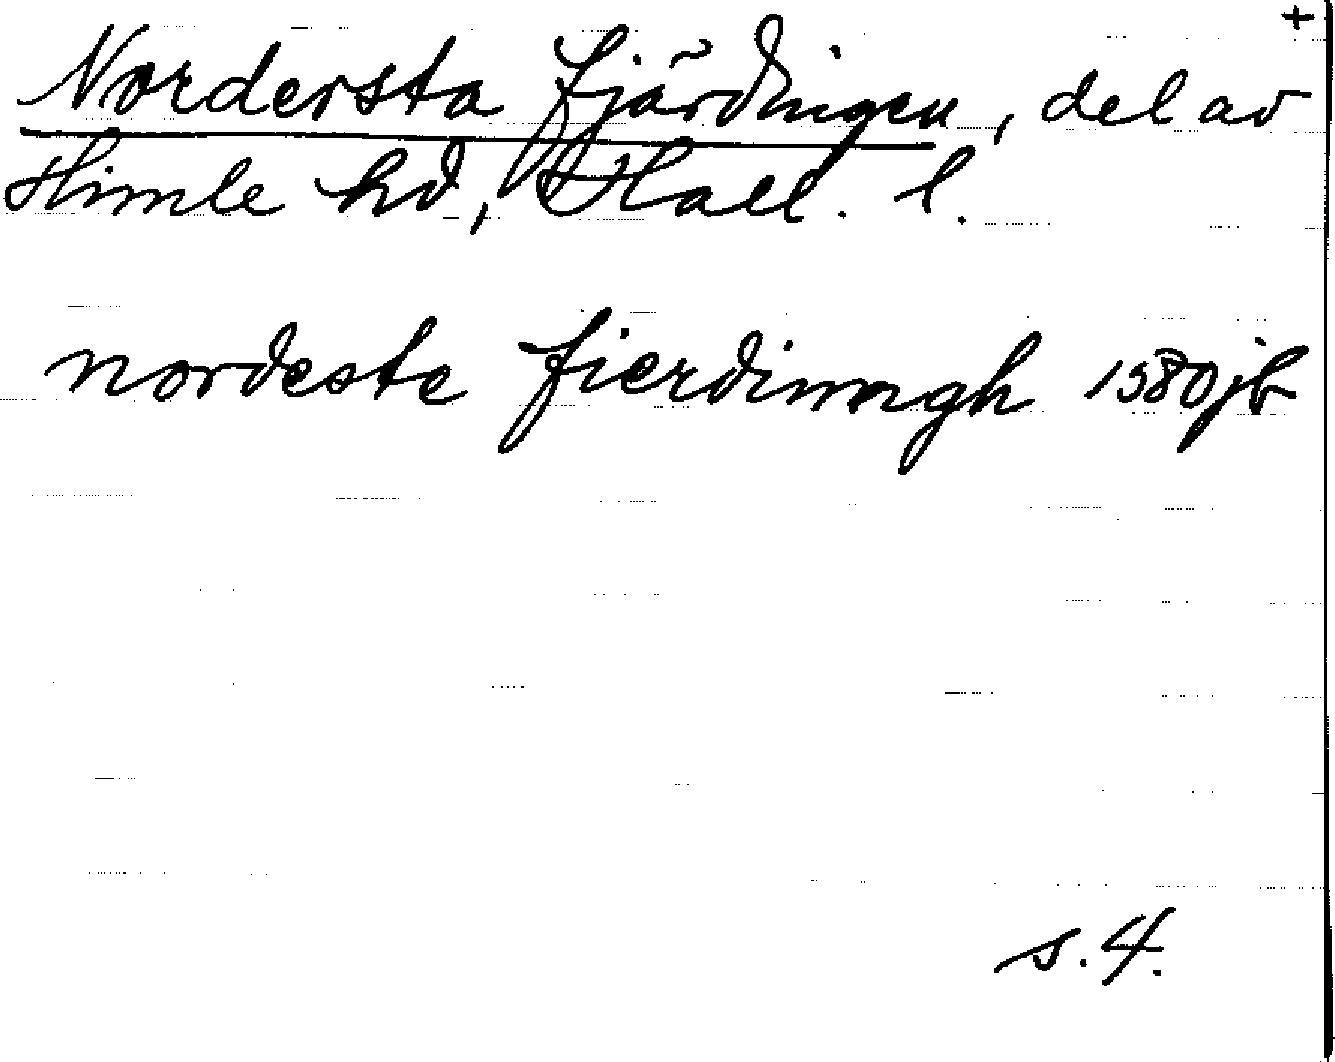 +
Nordersta fjärdingen, del av
Himle hd, Hall. l.
nordeste fierdinngh 1580 jb
s. 4.